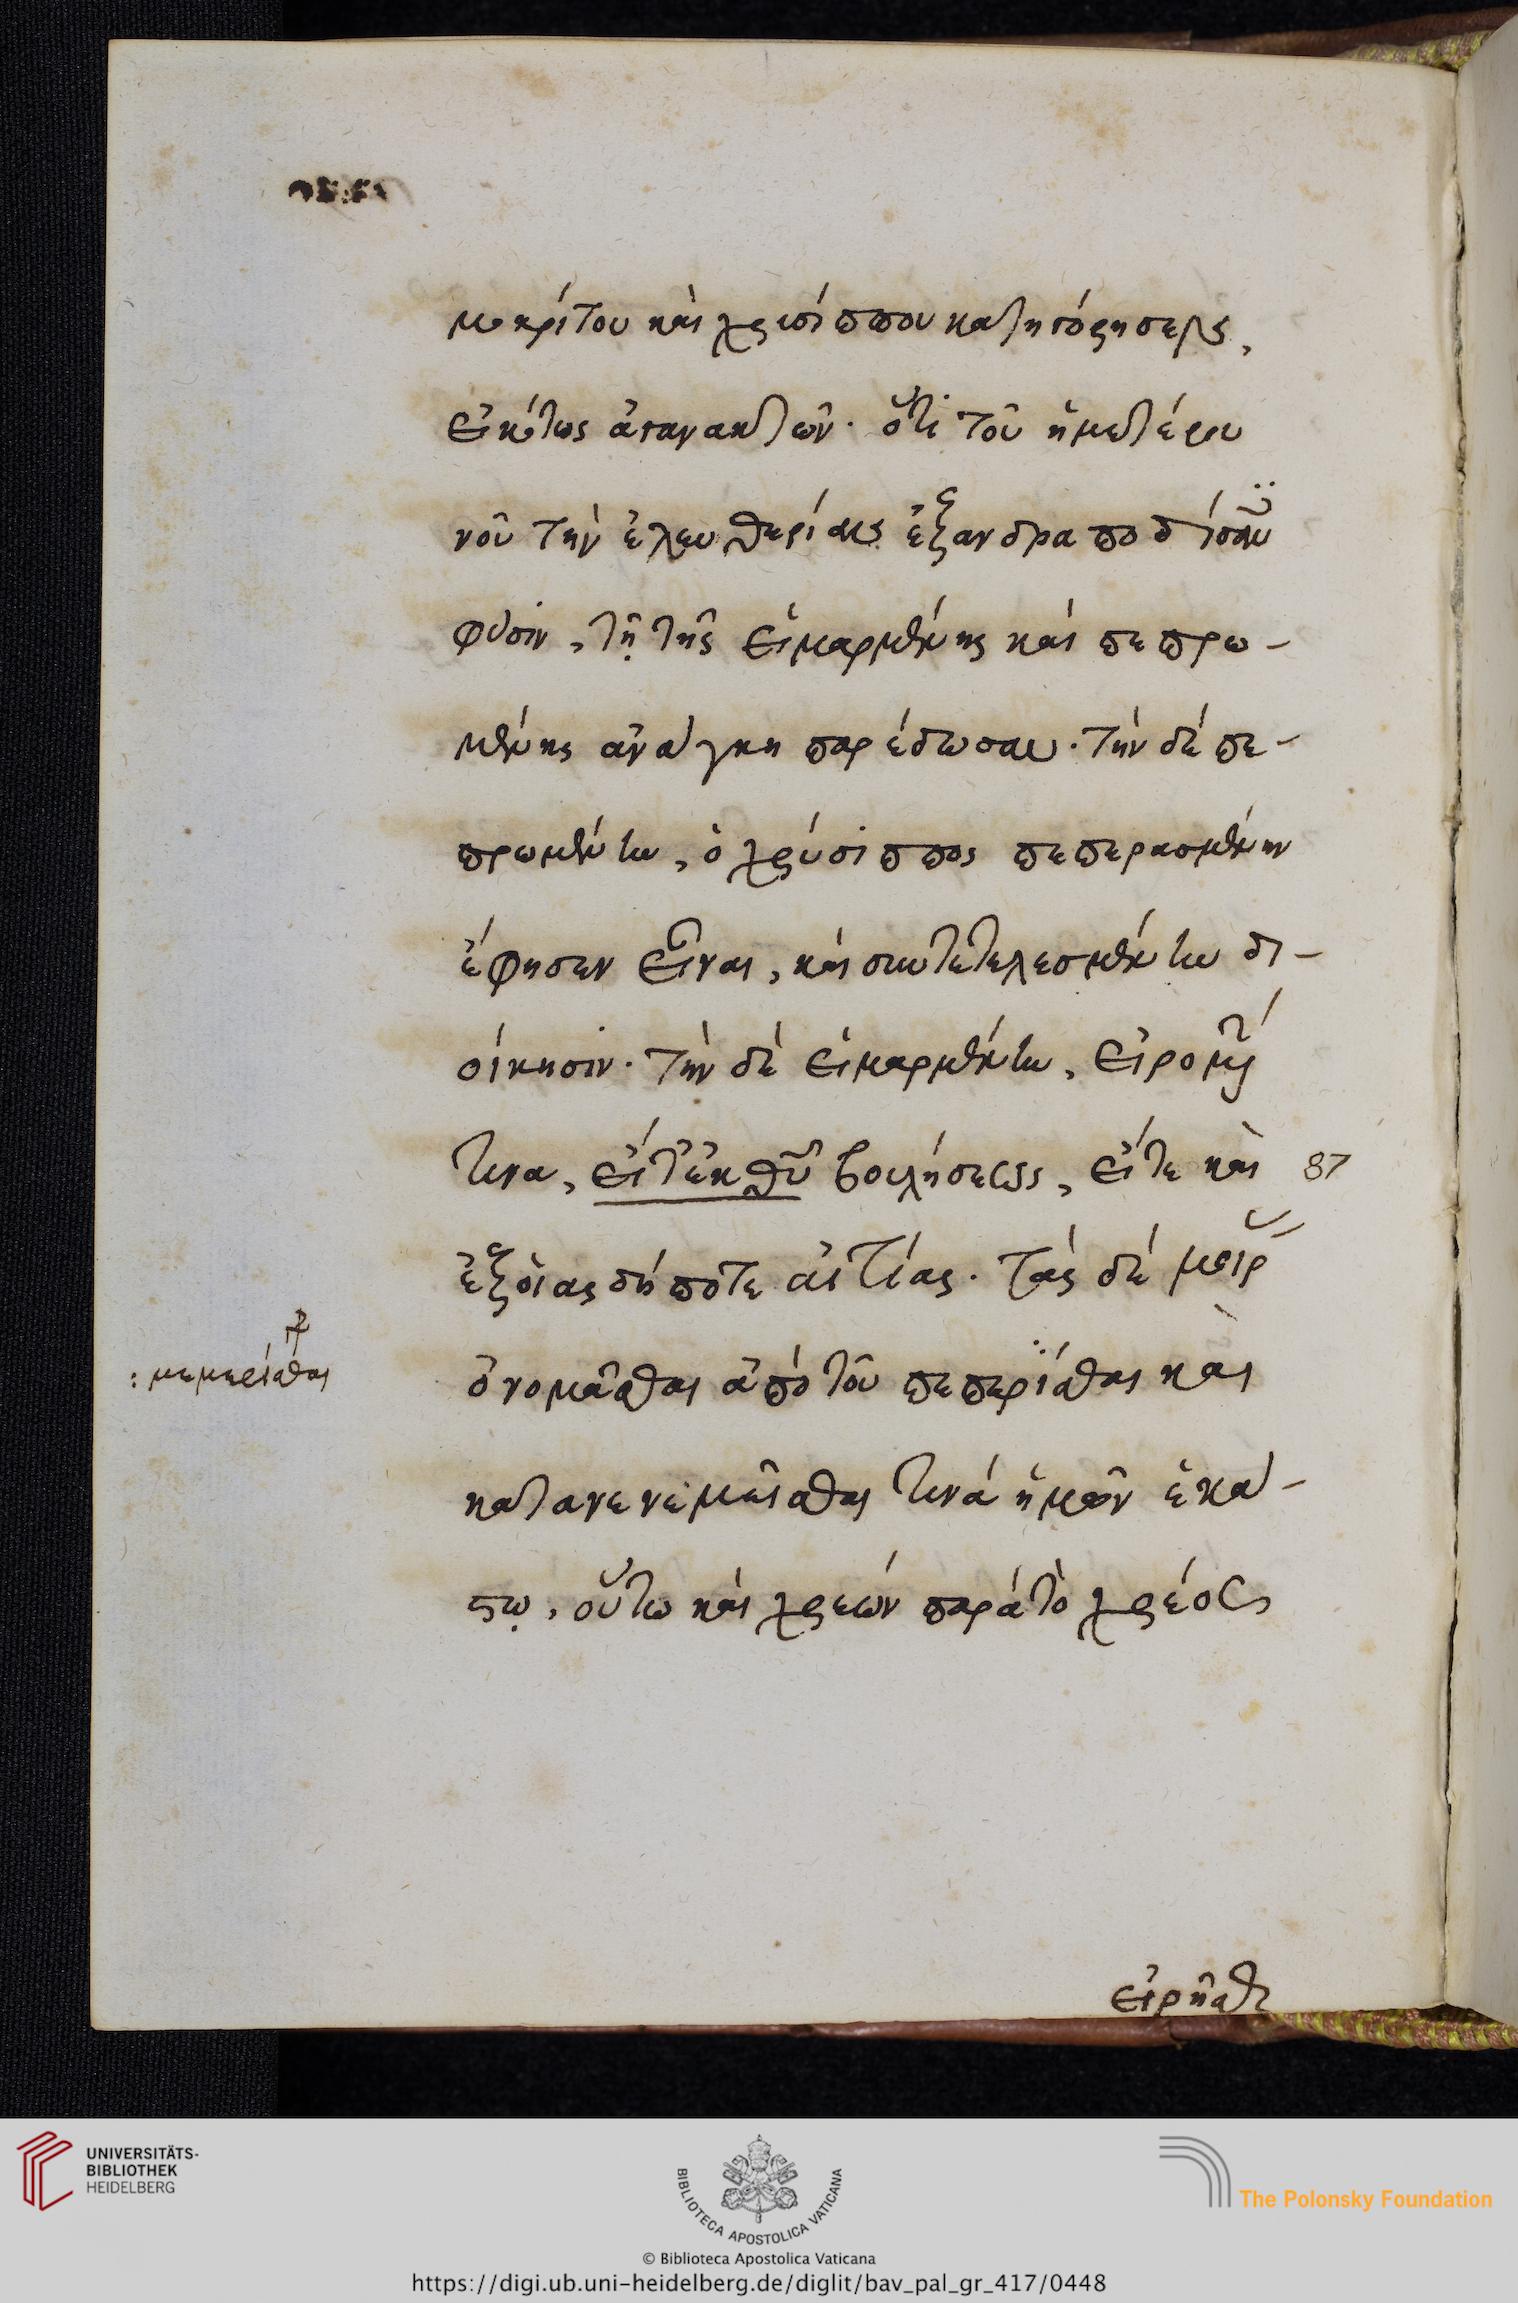 μοκρίτου καὶ χρυσίππου κατηγόρησεν,
εἰκότως ἀγανακτῶν· ὅτι τοῦ ἡμετέρου
νοῦ τὴν ἐλευθερίαν ἐξανδραποδίσαν
φύσιν, τῇ τῆς εἱμαρμένης καὶ πεπρω-
μένης ἀνάγκῃ παρέδωσαν. τὴν δὲ πε-
πρωμένην, ὁ χρύσιππος πεπερασμένην
ἔφησεν εἶναι, καὶ συντετελεσμένην δι-
οίκησιν. τὴν δὲ εἱμαρμένην, εἰρομένην
τινα, εἴτ' ἐκ θεοῦ βουλήσεως, εἴτε καὶ
ἐξ οἵας δήποτε αἰτίας. τὰς δὲ μοίρας
ὀνομᾶσθαι ἀπὸ τοῦ πεπερίσθαι καὶ
κατανενεμεῖσθαι τινὰ ἡμῶν ἑκά-
στῳ, οὕτω καὶ χρεών παρὰ τὸ χρέος
: μεμερίσθαι
87
εἰρῆσθαι
UNIVERSITÄTS-
BIBLIOTHEK
HEIDELBERG
BIBLIOTECA APOSTOLICA VATICANA
The Polonsky Foundation
© Biblioteca Apostolica Vaticana
https://digi.ub.uni-heidelberg.de/diglit/bav_pal_gr_417/0448